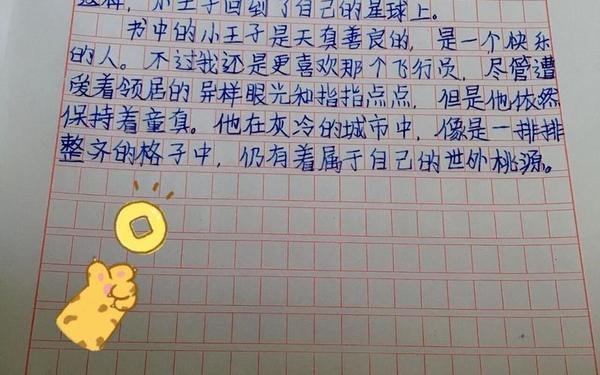 这样，小王子回到了自己的星球上。
书中的小王子是天真善良的，是一个快乐
的人。不过我还是更喜欢那个飞行员，尽管遭
爱着领居的异样眼光和指指点点，但是他依然
保持着童真。他在灰冷的城市中，像是一排排
整齐的格子中，仍有着属于自己的世外桃源。